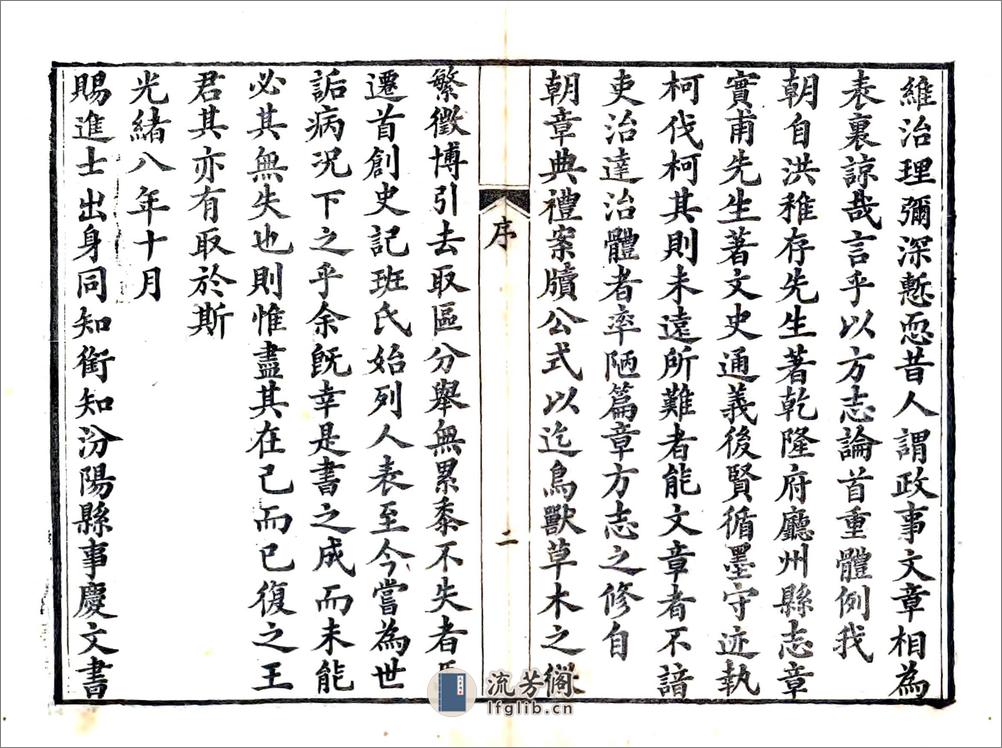 維治理彌深慙恧昔人謂政事文章相為
表裏諒哉言乎以方志論首重體例我
朝自洪稚存先生著乾隆府廳州縣志章
實甫先生著文史通義後賢循墨守迹執
柯伐柯其則未遠所難者能文章者不諳
吏治達治體者率陋篇章方志之修自
朝章典禮案牘公式以迄鳥獸草木之
序
二
繁徵博引去取區分舉無累黍不失者
遷首創史記班氏始列人表至今嘗為世
詬病况下之乎余既幸是書之成而未能
必其無失也則惟盡其在己而已復之王
君其亦有取於斯
光緒八年十月
賜進士出身同知銜知汾陽縣事慶文書
流芳阁
lfglib.cn